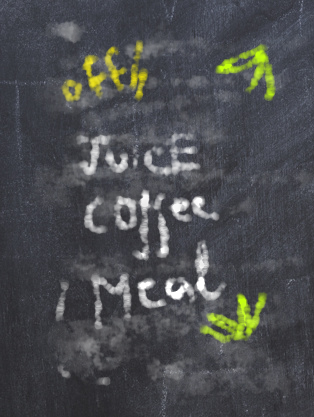 JuicE
Coffee
1 Meal